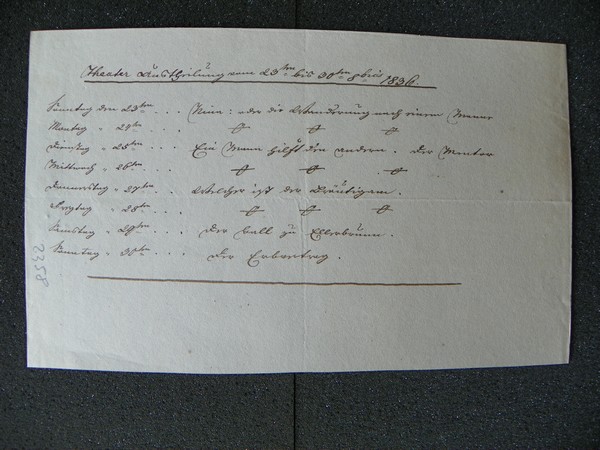 Theater Austheilung vom 23ten bis 30ten 8bris 1836
Sonntag den 23ten . . . Nina: oder die Wanderung nach einem Manne
Montag " 24ten . . .
Dienstag " 25ten . . . Ein Mann hilft den andern. Der Mentor
Mittwoch " 26ten . . .
Donnerstag " 27ten . . . Welcher ist der Bräutigam.
Freytag " 28ten . . .
Samstag " 29ten . . . Der Ball zu Ellerbrunn.
Sonntag " 30ten . . . Der Erbvertrag.
2358